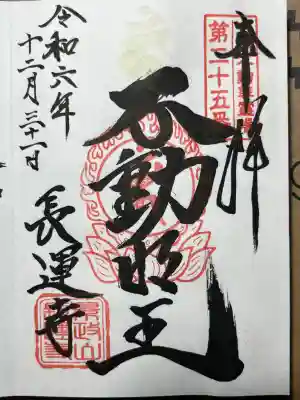 奉拝
第二十五番
不動明王
長運寺
令和六年
十二月三十一日